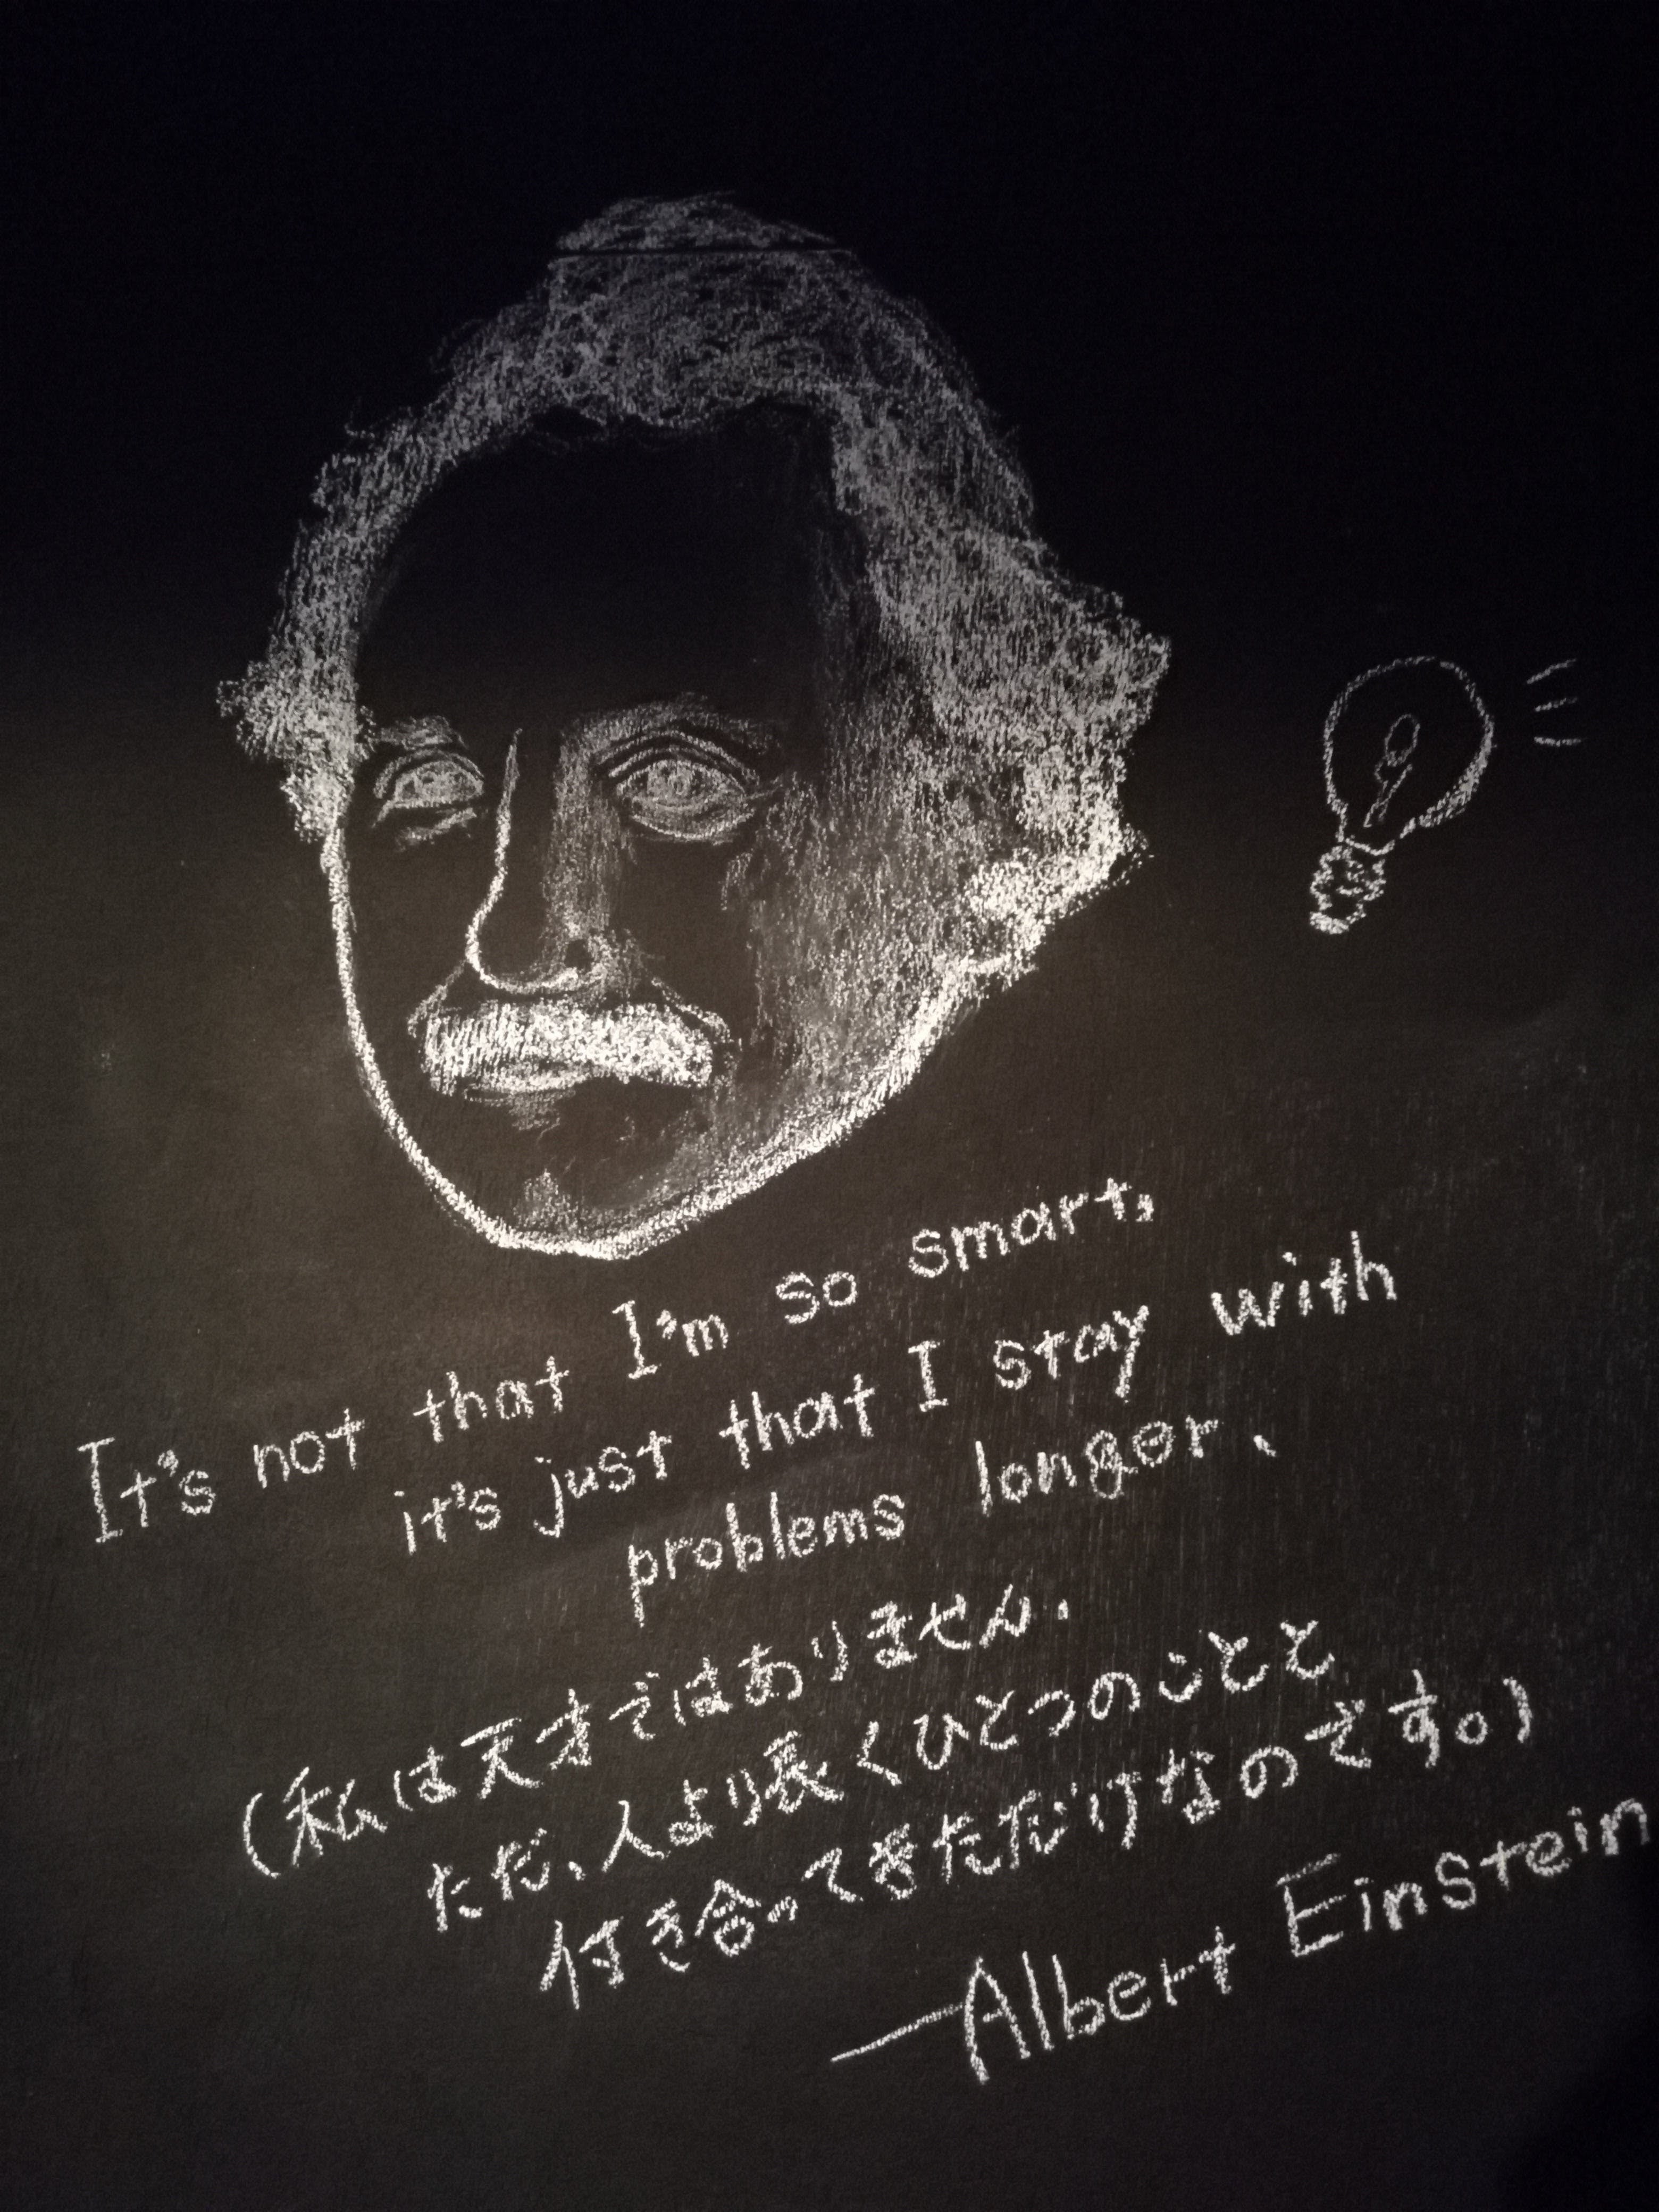 It's not that I'm so smart,
it's just that I stay with
problems longer.
(私は天才ではありません.
ただ、人より長くひとつのことと
付き合ってきただけなのです。)
—Albert Einstein